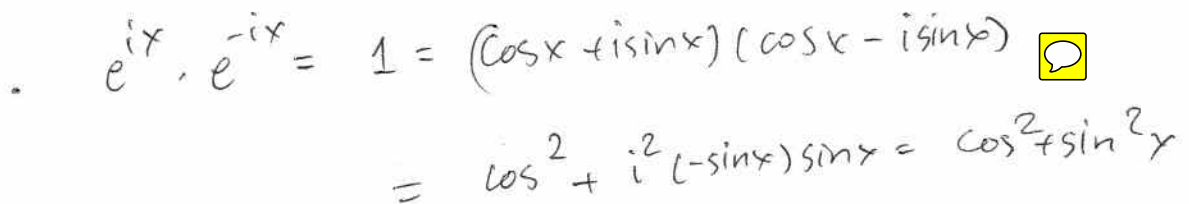 . e^{ix} . e^{-ix} = 1 = (cosx + isinx) (cosx - isinx)
= cos^2 + i^2 (-sinx) sinx = cos^2 + sin^2 x